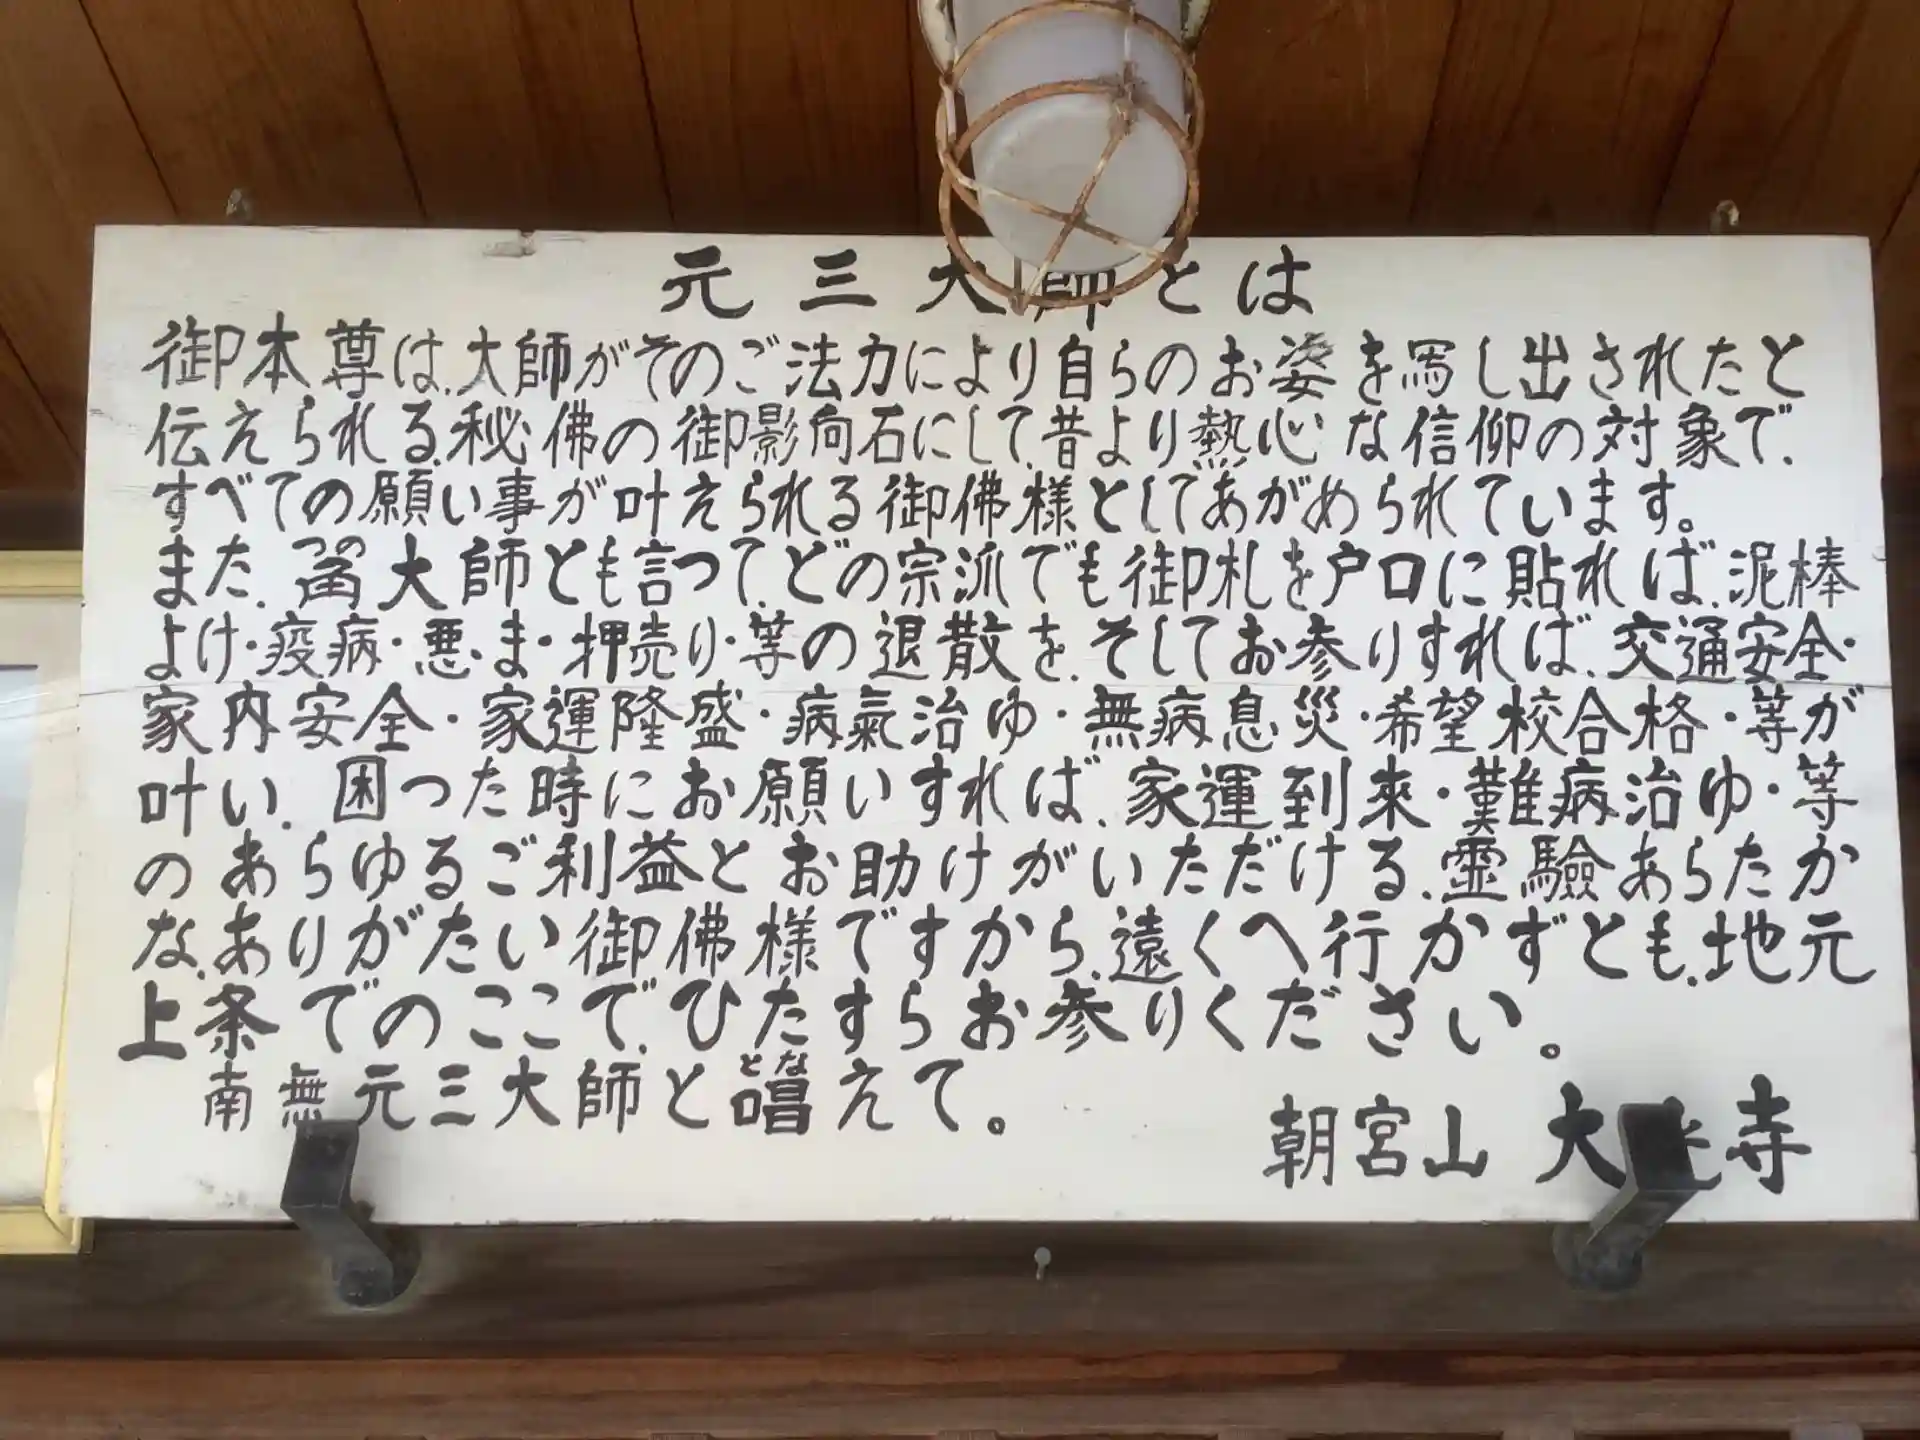 元三大師とは
御本尊は、大師がそのご法力により自らのお姿を写し出されたと
伝えられる、秘佛の御影向石にして、昔より熱心な信仰の対象で、
すべての願い事が叶えられる御佛様としてあがめられています。
また、角大師とも言って、どの宗派でも御札を戸口に貼れば、泥棒
つの
よけ・疫病・悪ま・押売り・等の退散を、そしてお参りすれば、交通安全・
家内安全・家運隆盛・病氣治ゆ・無病息災・希望校合格・等が
叶い、困った時にお願いすれば、家運到來・難病治ゆ・等
のあらゆるご利益とお助けがいただける、霊驗あらたか
な、ありがたい御佛様ですから、遠くへ行かずとも、地元
上条でのここで、ひたすらお参りください。
南無元三大師と唱えて。
とな
朝宮山 大光寺